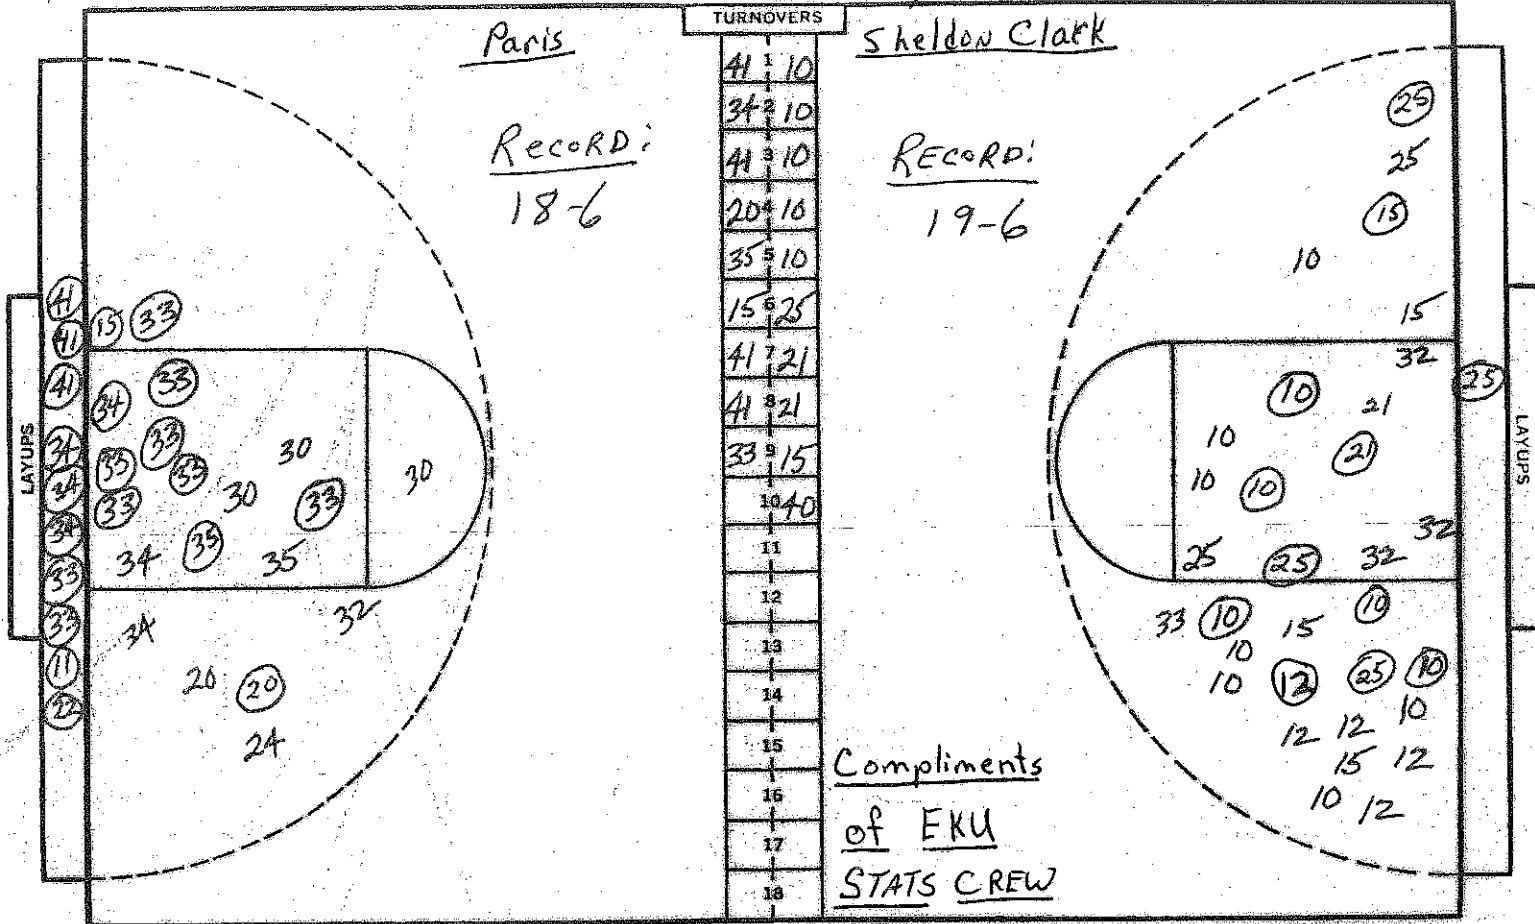 TURNOVERS
Paris
Sheldon Clark
Record:
18-6
RECORD:
19-6
41 1 10
34 2 10
41 3 10
20 4 10
35 5 10
15 6 25
41 7 21
41 8 21
33 9 15
10 40
11
12
13
14
15
16
17
18
LAYUPS
41
41
41
34
34
34
33
33
11
22
15 33
33
34
33
33 33
33
30
30
30
33
34 35 35
34
32
20 20
24
25
25
15
10
15
32
10
21
10
21
10 10
32
25 25 32
33 10 15 10
10
10 12 25 10
12 12 10
15 12
10 12
25
LAYUPS
Compliments
of EKU
STATS CREW